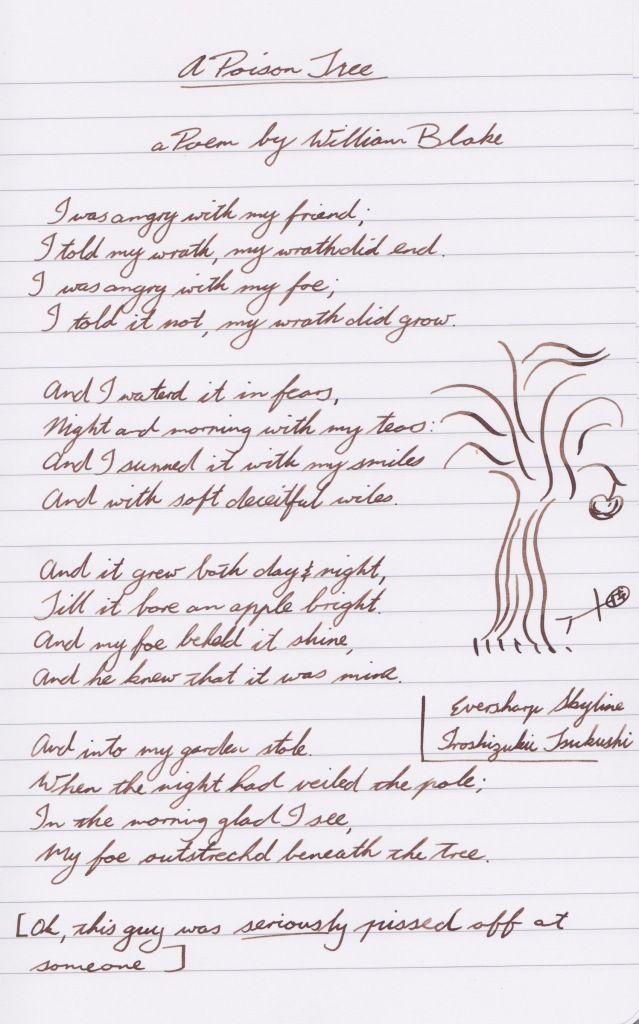 A Poison Tree
a Poem by William Blake
I was angry with my friend;
I told my wrath, my wrath did end.
I was angry with my foe;
I told it not, my wrath did grow.
And I waterd it in fears,
Night and morning with my tears:
And I sunned it with my smiles
And with soft deceitful wiles.
And it grew both day & night,
Till it bore an apple bright.
And my foe beheld it shine,
And he knew that it was mine.
And into my garden stole.
When the night had veiled the pole;
In the morning glad I see,
My foe outstrechd beneath the tree.
Eversharp Skyline
Iroshizuku Tsukushi
[Ok, this guy was seriously pissed off at
someone]